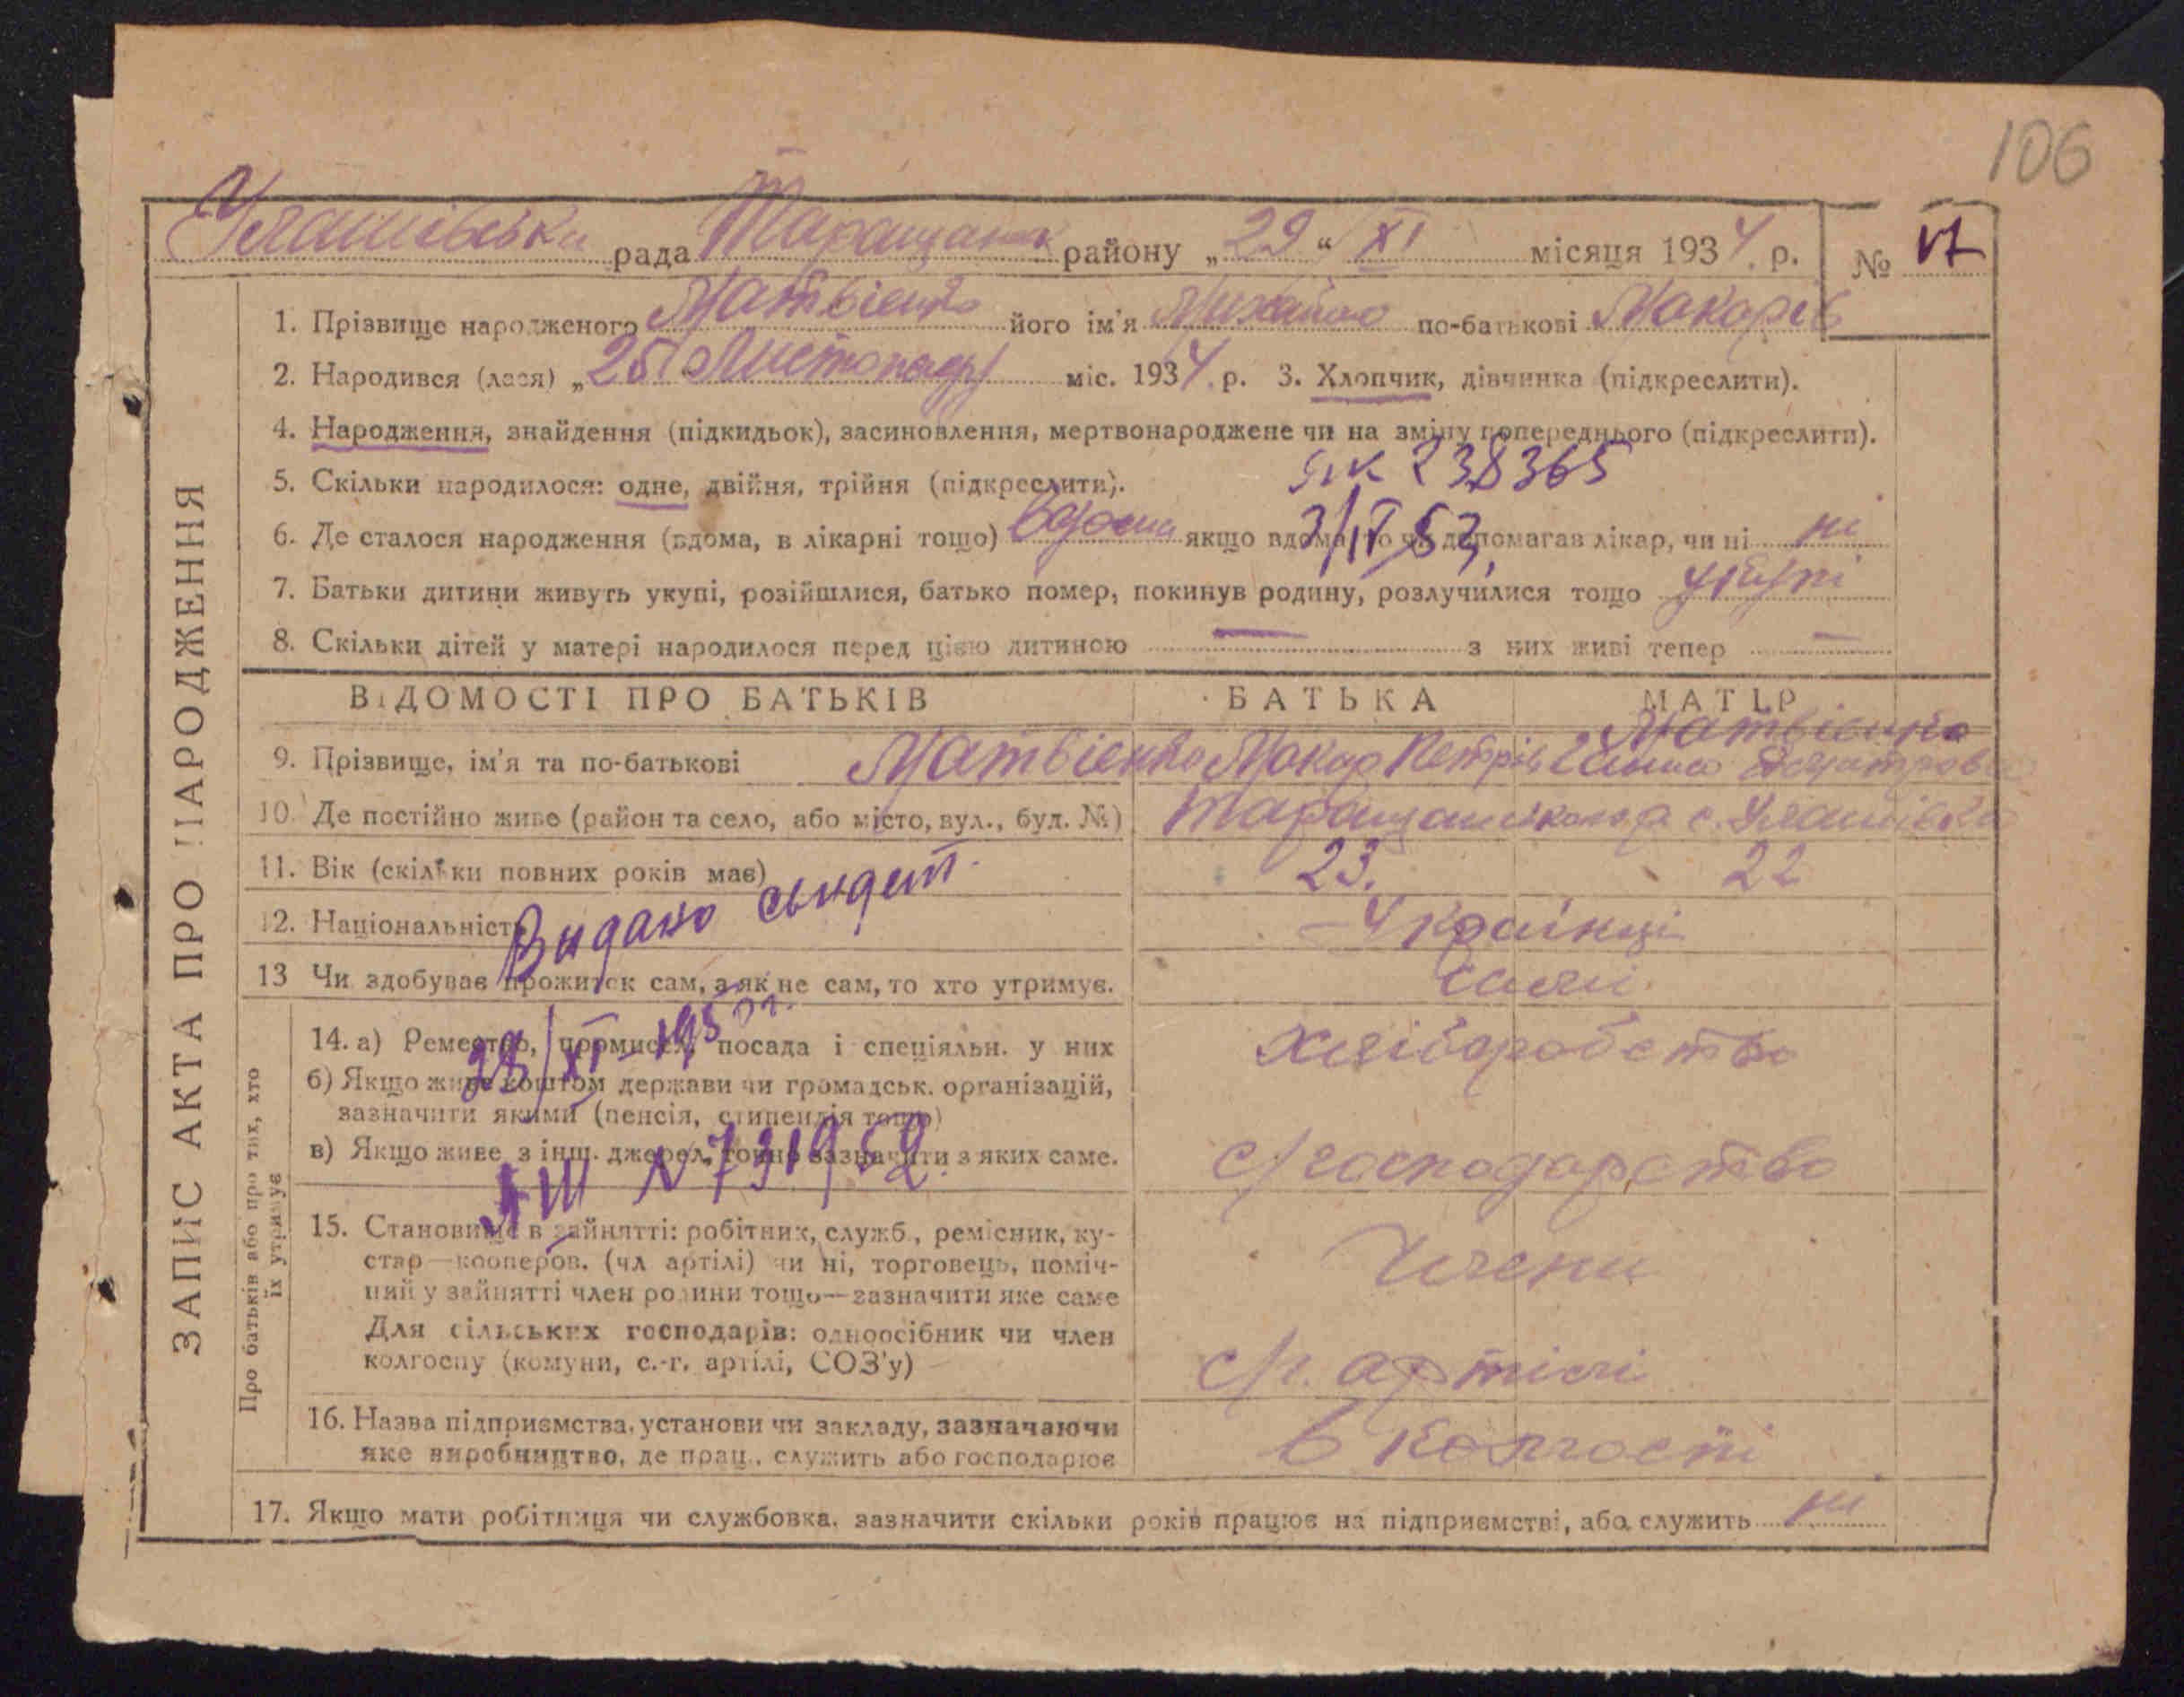 106
Улашівська рада Таращанськ району „29“ XI місяця 1934 р. № 17
ЗАПИС АКТА ПРО НАРОДЖЕННЯ
1. Прізвище народженого Матвієнко його ім'я Михайло по-батькові Макарів
2. Народився (лася) „25 Листопаду міс. 1934. р. 3. Хлопчик, дівчинка (підкреслити).
4. Народження, знайдення (підкидьок), засиновлення, мертвонароджене чи на зміну попереднього (підкреслити).
5. Скільки народилося: одне, двійня, трійня (підкреслити).
238365
6. Де сталося народження (вдома, в лікарні тощо) вдома якщо вдома, то чи допомагав лікар, чи ні ні
3/IV 53
7. Батьки дитини живуть укупі, розійшлися, батько помер, покинув родину, розлучилися тощо укупі
8. Скільки дітей у матері народилося перед цією дитиною — з них живі тепер —
ВІДОМОСТІ ПРО БАТЬКІВ БАТЬКА МАТІР
9. Прізвище, ім'я та по-батькові Матвієнко Макар Петрів Матвієнко
10. Де постійно живе (район та село, або місто, вул., буд. №) Таращанського р. с. Улашівка
11. Вік (скільки повних років має) 23. 22
Видано
12. Національність – Українці
13 Чи здобуває прожиток сам, а як не сам, то хто утримує. сами
28/XI–1950 г.
Про батьків або про тих, хто їх утримує
14. а) Ремество, промисел, посада і спеціяльн. у них хліборобство
б) Якщо живе коштом держави чи громадськ. організацій,
зазначити якими (пенсія, стипендія тощо)
в) Якщо живе з інш. джерел, точно зазначити з яких саме. с/господарство
15. Становище в зайнятті: робітник, служб., ремісник, ку-
стар—кооперов. (чл артілі) чи ні, торговець, поміч- Члени
ний у зайнятті член родини тощо—зазначити яке саме
Для сільських господарів: одноосібник чи член
колгоспу (комуни, с.-г. артілі, СОЗ'у) с/г. артілі
16. Назва підприємства, установи чи закладу, зазначаючи
яке виробництво, де прац., служить або господарює в колгоспі
17. Якщо мати робітниця чи службовка, зазначити скільки років працює на підприємстві, або служить ні